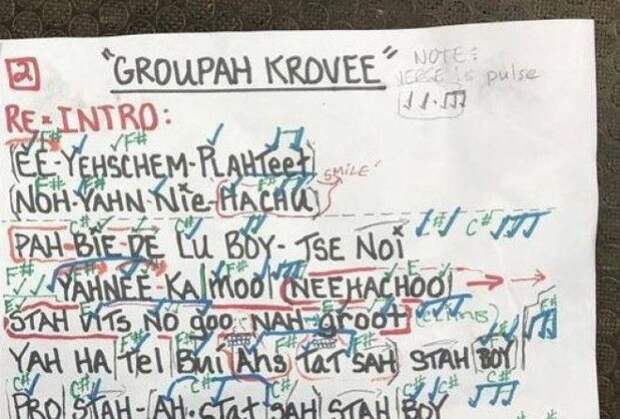 2
"GROUPAH KROVEE"
NOTE:
VERSE is pulse
RE-INTRO:
F#
(EE-YEHSCHEM-PLAHTeet)
(NOH-YAHN-Nie-HACHU)
SMILE
PAH-BIE-DE LU BOY-TSE NOI
F# C#
YAHNEE-KA|mool (NEEHACHOO)
STAH VITS NO goo NAH groot
YAH HA|Tel|Bui|Ans|Tat SAH| STAH|BOY
PRO|STAH-AH-STAT|SAH|STAH|BOY